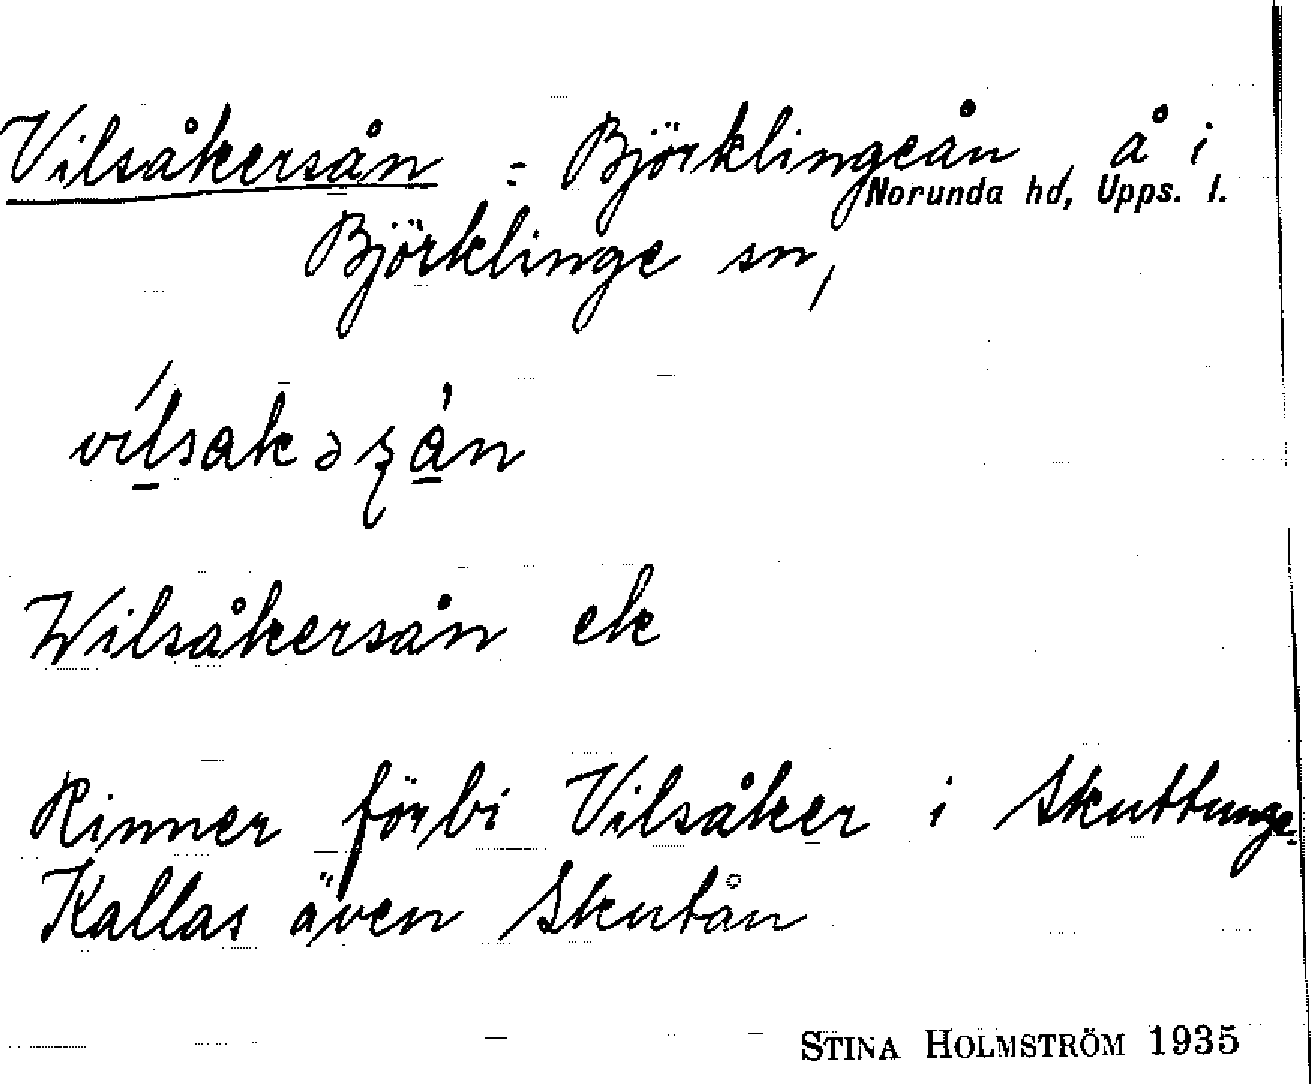 Vilsåkersån = Björklingeån, å i
Norunda hd, Upps. l.
Björklinge sn,
Wilsåkersån ek
Rinner förbi Vilsåker i Skuttunge.
Kallas även Skutån
STINA HOLMSTRÖM 1935